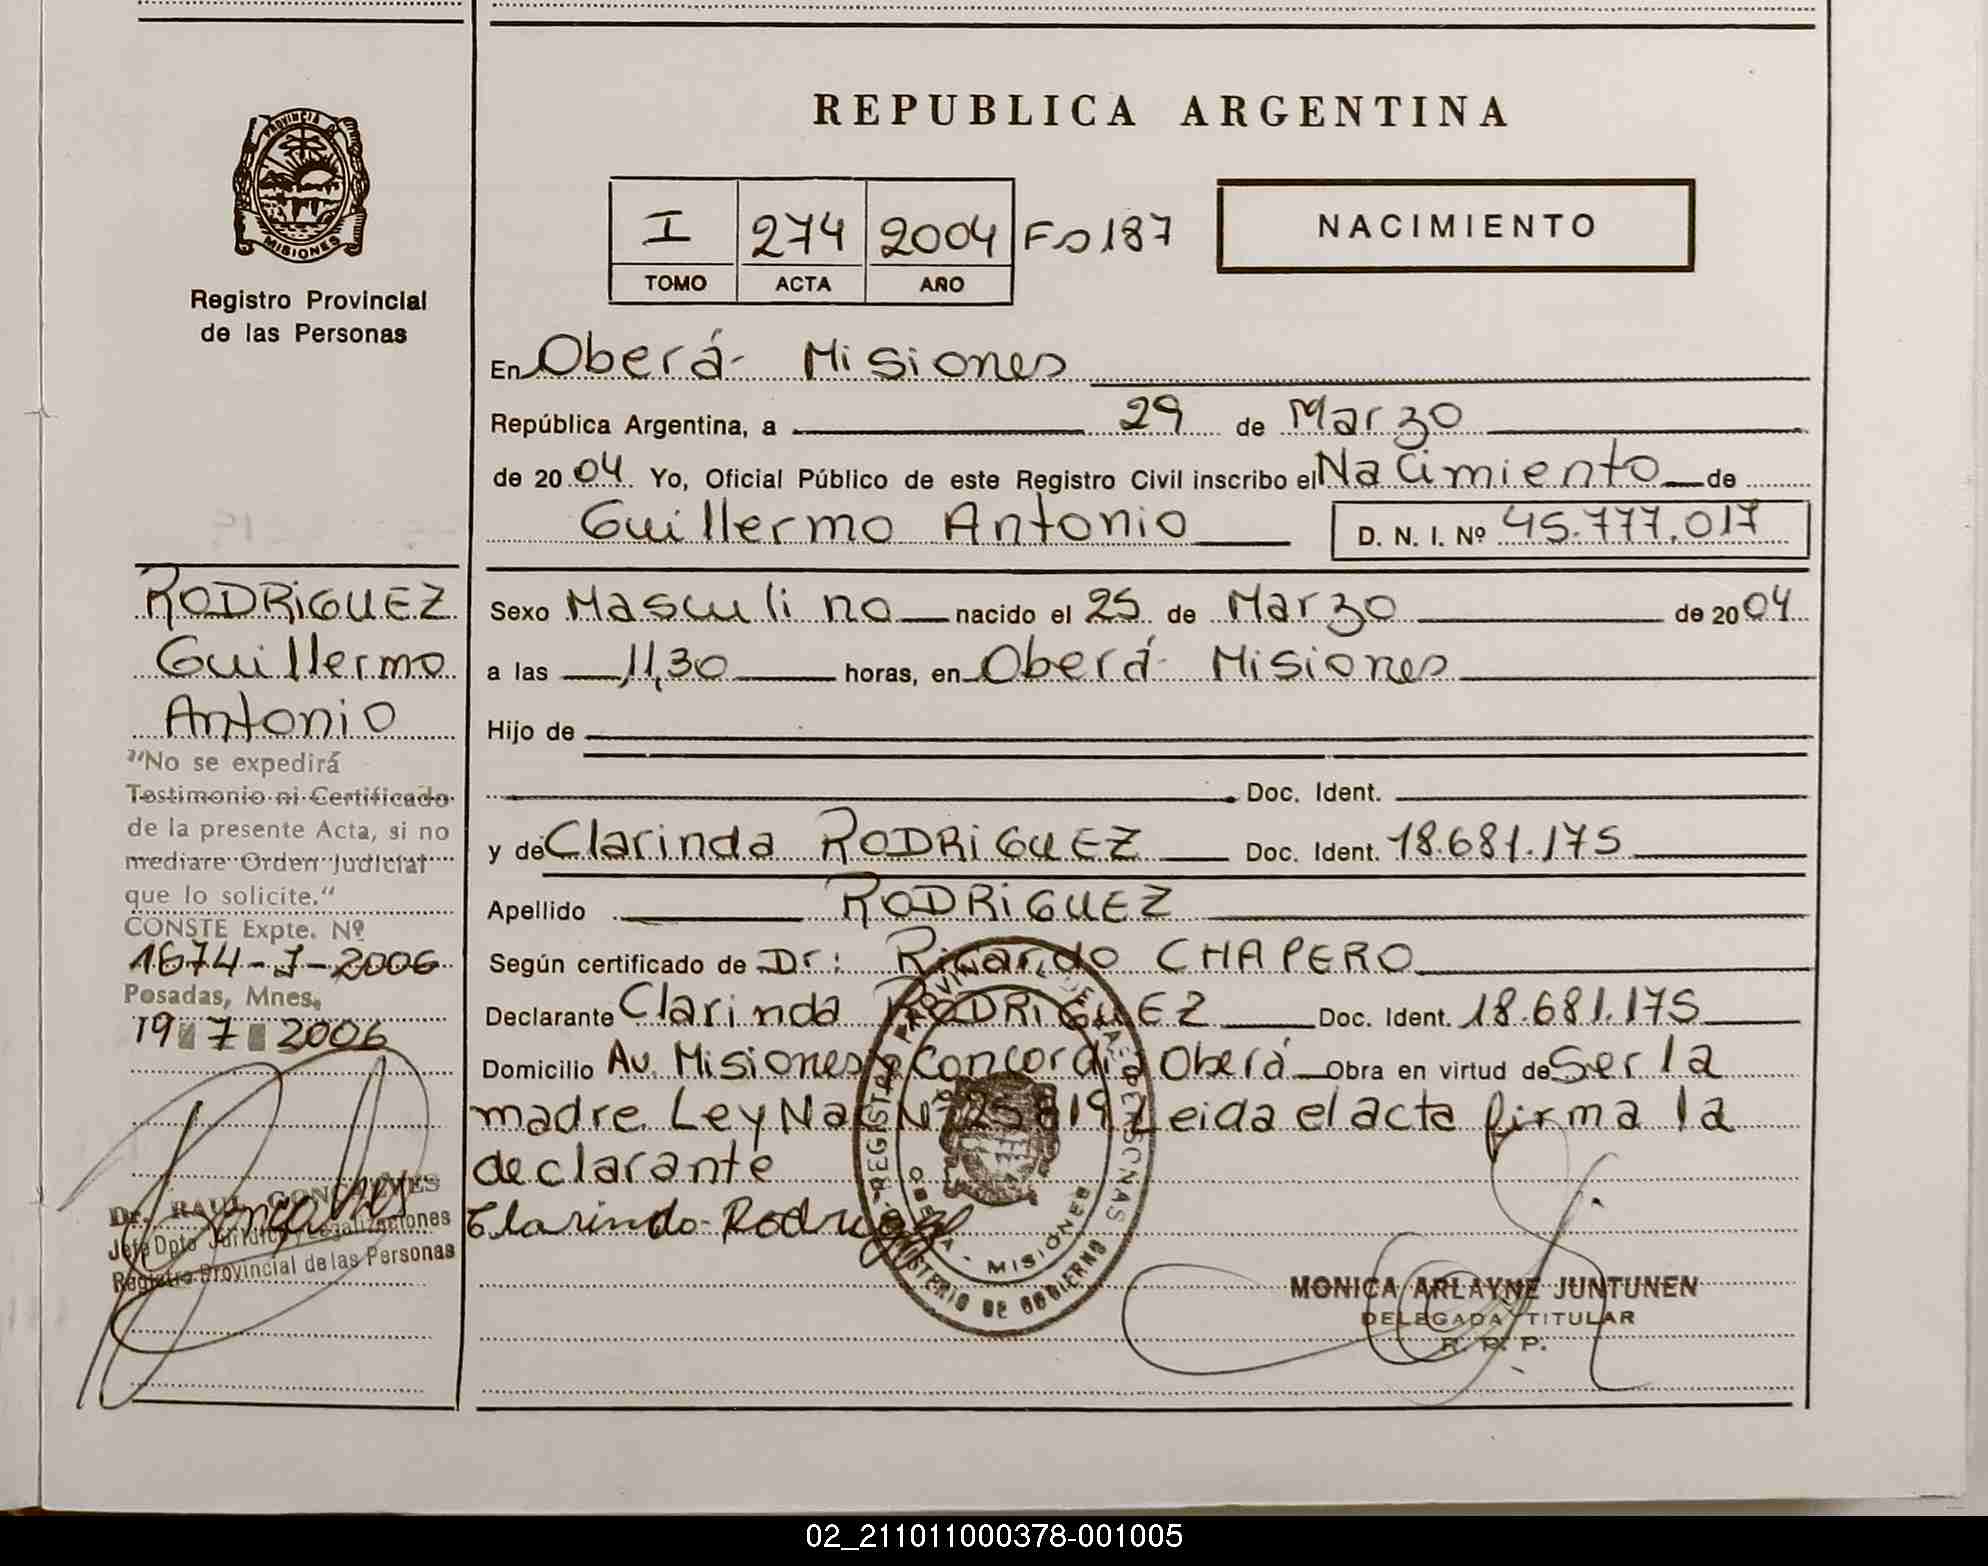 REPUBLICA ARGENTINA
PROVINCIA DE
MISIONES
Registro Provincial
de las Personas
I 274 2004 Fo 187
TOMO ACTA AÑO
NACIMIENTO
En Oberá- Misiones
República Argentina, a 29 de Marzo
de 2004 Yo, Oficial Público de este Registro Civil inscribo el Nacimiento de
Guillermo Antonio D. N. I. Nº 45.777.017
Sexo Masculino nacido el 25 de Marzo de 2004
a las 11,30 horas, en Oberá- Misiones
Hijo de
Doc. Ident.
y de Clarinda RODRIGUEZ Doc. Ident. 18.681.175
Apellido RODRIGUEZ
Según certificado de Dr: Ricardo CHAPERO
Declarante Clarinda RODRIGUEZ Doc. Ident. 18.681.175
Domicilio Av. Misiones y Concordia Oberá Obra en virtud de Ser la
madre. Ley Nac Nº 25819 Leida el acta firma la
declarante
Clarinda Rodriguez
REGISTRO PROVINCIAL DE LAS PERSONAS
OBERA - MISIONES
MINISTERIO DE GOBIERNO
MONICA ARLAYNE JUNTUNEN
DELEGADA TITULAR
R. P. P.
RODRIGUEZ
Guillermo
Antonio
"No se expedirá
Testimonio ni Certificado
de la presente Acta, si no
mediare Orden Judicial
que lo solicite."
CONSTE Expte. Nº
1674-J-2006
Posadas, Mnes,
19 7 2006
Dr. RAUL GONCALVES
Jefe Dpto Jurídico y Legalizaciones
Registro Provincial de las Personas
02_211011000378-001005